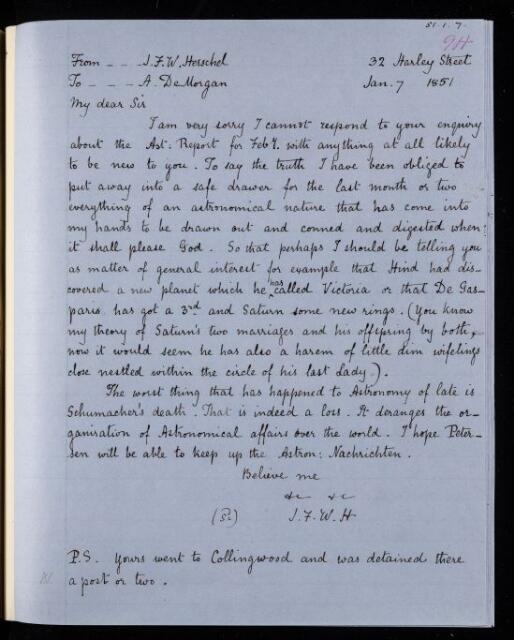 51.1.7.
94
From - - J.F.W. Herschel 32 Harley Street
To - - - A. DeMorgan Jan. 7 1851
My dear Sir
I am very sorry I cannot respond to your enquiry
about the Ast: Report for Feby. with anything at all likely
to be new to you. To say the truth I have been obliged to
put away into a safe drawer for the last month or two
everything of an astronomical nature that has come into
my hands to be drawn out and conned and digested when
it shall please God. So that perhaps I should be telling you
as matter of general interest for example that Hind had dis-
covered a new planet which he has called Victoria or that De Gas-
paris has got a 3rd and Saturn some new rings. (You know
my theory of Saturn's two marriages and his offspring by both,
now it would seem he has also a harem of little dim wifelings
close nestled within the circle of his last Lady.).
The worst thing that has happened to Astronomy of late is
Schumacher's death. That is indeed a loss. It deranges the or-
ganisation of Astronomical affairs over the world. I hope Peter-
sen will be able to keep up the Astron: Nachrichten.
Believe me
&c &c
J.F.W.H
P.S. Yours went to Collingwood and was detained there
a post or two.